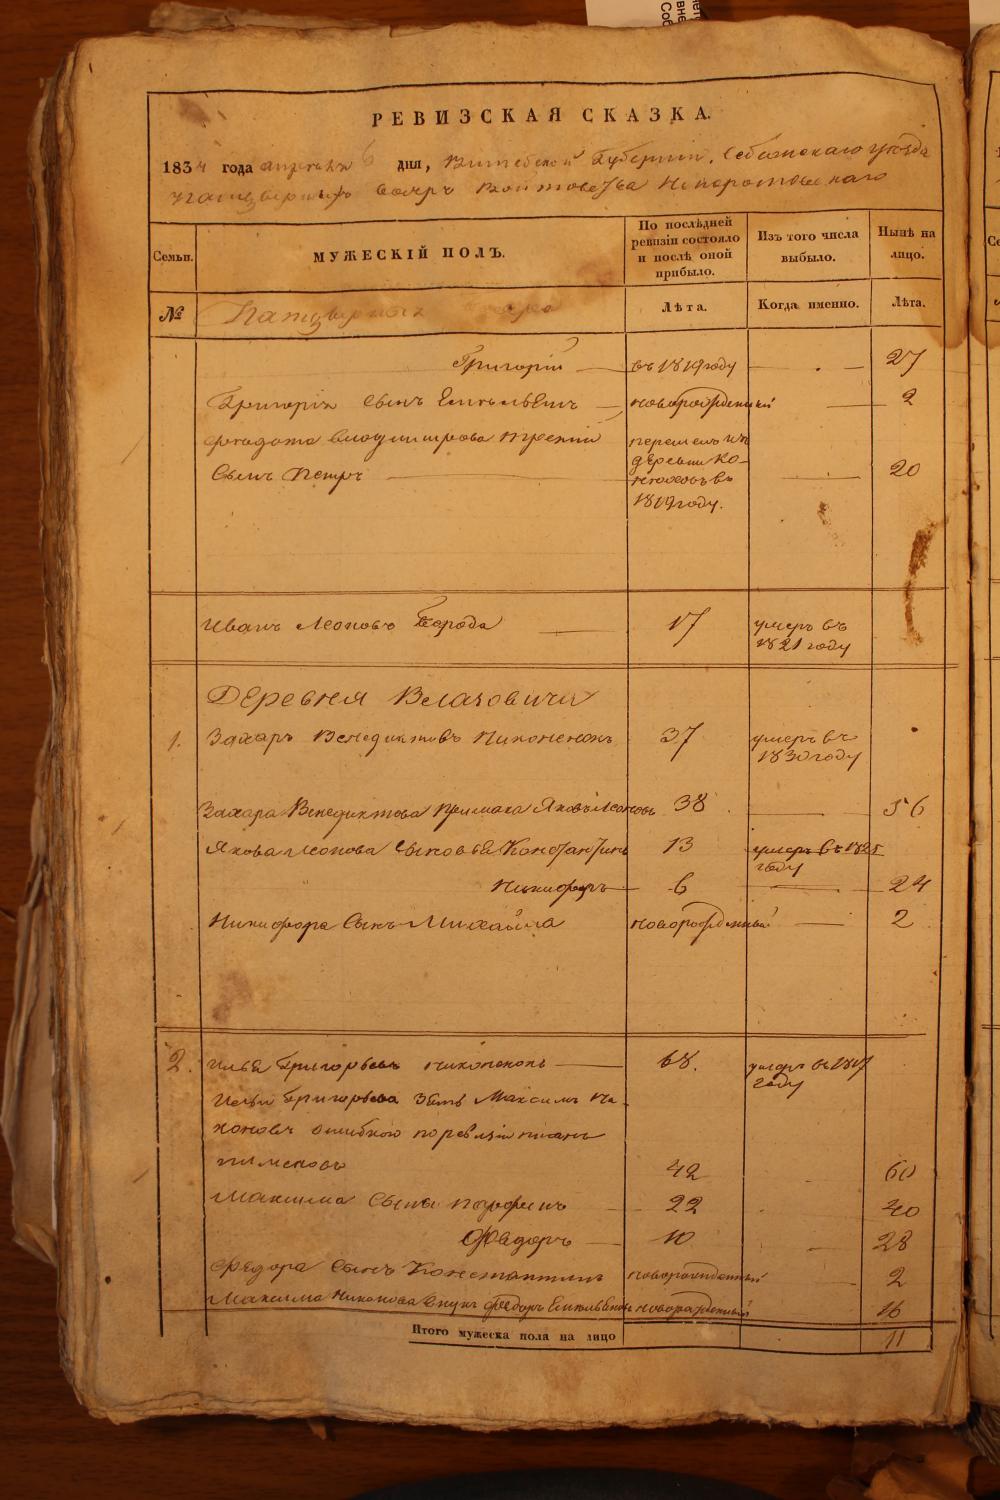 РЕВИЗСКАЯ СКАЗКА.
1834 года апреля 6 дня, Витебской Губернии, Себежскаго уезда
Панцырныхъ бояръ Войтовства Непоротовскаго
Семьи.
МУЖЕСКІЙ ПОЛЪ.
По послѣдней ревизіи состояло и послѣ оной прибыло.
Изъ того числа выбыло.
Нынѣ на лицо.
№
Панцырныхъ
Лѣта.
Когда именно.
Лѣта.
Григорій въ 1819 году 27
Григорія сынъ Емельянъ новорожденный 2
Федота Владимирова
сынъ Петръ
перешелъ изъ
деревни Ко-
въ
1819 году.
20
Иванъ Леоновъ 17 умеръ въ
1821 году
Деревня
1. Захаръ Венедиктовъ Никоненокъ 37 умеръ въ
1830 году
Захара Венедиктова Примака Яковъ Леоновъ 38 56
Якова Леонова сыновья Константинъ 13 умеръ въ 1825
году
Никифоръ 6 24
Никифора сынъ Михайла новорожденный 2
2. Илья Григорьевъ Никоненокъ 68. умеръ въ 1817
году
Ильи Григорьева зять Максимъ Ни-
коновъ ошибкою по ревизіи писанъ
42 60
Максима сыны 22 40
Федоръ 10 28
Федора сынъ Константинъ новорожденный 2
Максима Никонова внукъ Федоръ новорожденный 16
Итого мужеска пола на лицо 11